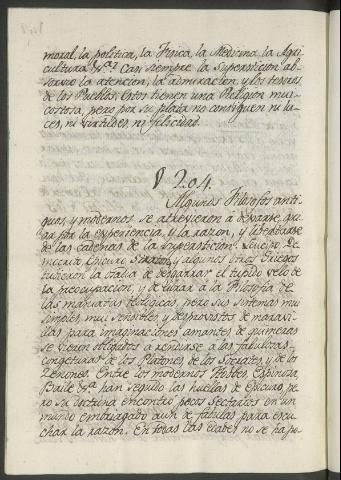 moral, la politica, la Fisica, la Medicina, la Agri
cultura &ca. Casi siempre la Supersticion ab
sorvio la atencion, la admiracion y los tesoros
de los Pueblos. Estos tienen una Religion mui
costosa, pero por su plata no consiguen ni lu-
ces, ni virtudes, ni felicidad.
§ 204.
Algunos Filosofos anti
guos, y modernos se atrevieron á dexarse gui
ar por la experiencia, y la razon, y libertarse
de las cadenas de la supersticion. Leucipo, De
mocrito, Epicuro, Straton, y algunos otros Griegos
tubieron la osadia de desgarrar el tupido velo de
la preocupacion, y de librar á la Filosofia de
las maniatas teologicas, pero sus sistemas mui
simples, mui sensibles, y desprovistos de maravi
llas para imaginaciones amantes de quimeras
se vieron obligados á rendirse á las fabulosas
congeturas de los Platones, de los Socrates, y de los
Zenones. Entre los modernos Hobbes, Espinosa,
Baile &ca. han seguido las huellas de Epicuro, pe
ro su doctrina encontró pocos Sectarios en un
mundo embriagado aun de fabulas para escu
char la razon. En todas las edades no se ha po